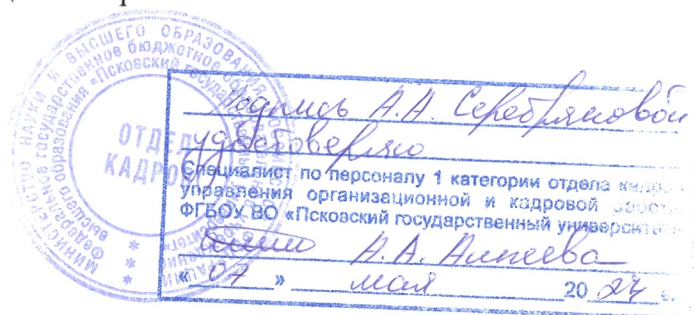 МИНИСТЕРСТВО НАУКИ И ВЫСШЕГО ОБРАЗОВАНИЯ
Федеральное государственное бюджетное
высшего образования «Псковский государственный
ОТДЕЛ
КАДРОВ
Подпись А.А. Серебряковой
удостоверяю
Специалист по персоналу 1 категории отдела
управления организационной и кадровой
ФГБОУ ВО «Псковский государственный университет
А.А.
« 07 » мая 20 24 г.